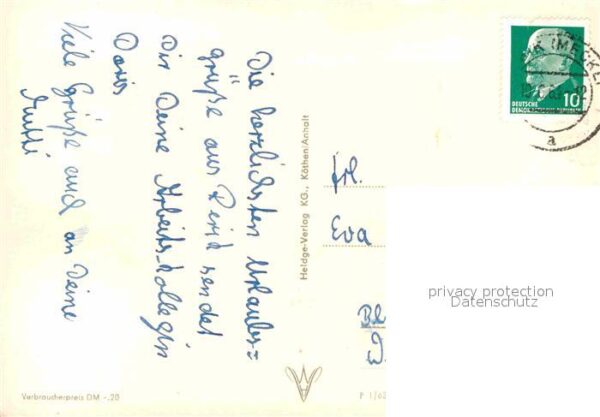 Die herzlichsten Urlaubs=
grüße aus Rerik sendet
Dir Deine Arbeitskollegin
Doris
Viele Grüße auch an Deine
Mutti
Heldge-Verlag KG., Köthen/Anhalt
Frl.
Eva
DEUTSCHE
10
a
privacy protection
Datenschutz
Verbraucherpreis DM -,20
P 1/63